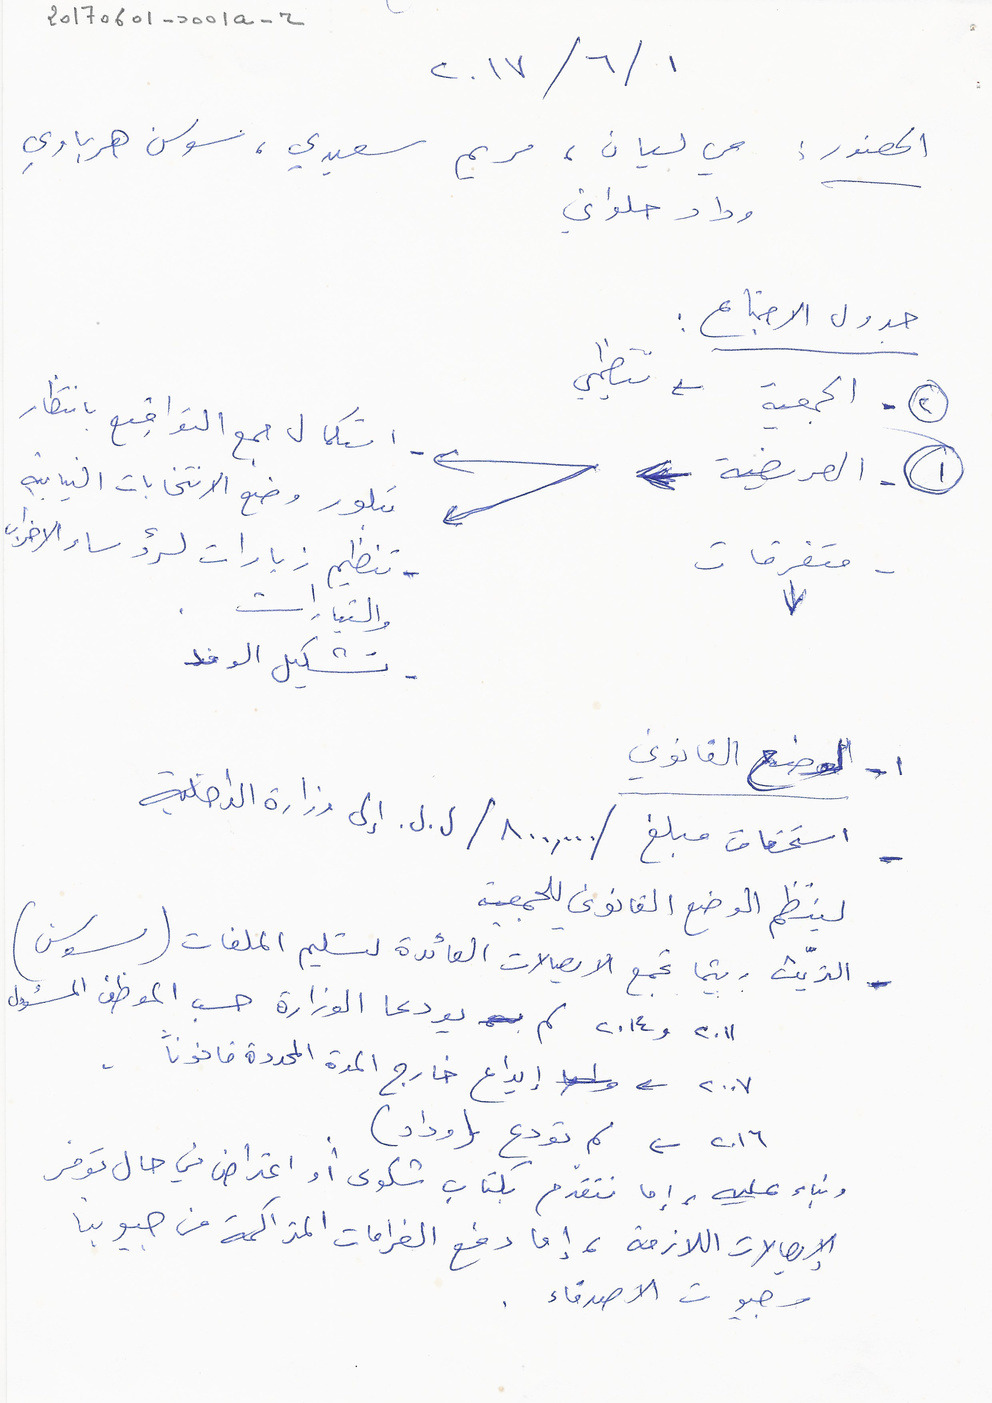 20170601-0001a-2
٢٠١٧/٦/١
الحضور: مي لسيان، مريم سعيدي، سوسن هرباوي
وداد حلواني
جدول الاجتماع:
٢ - الجمعية ← تنظيمي
١ - العريضة ←
- استكمال جمع التواقيع بانتظار
تبلور وضع الانتخابات النيابية
- تنظيم زيارات لرؤساء الاحزاب
والتيارات.
- تشكيل الوفد
- متفرقات
١- الوضع القانوني
- استحقاق مبلغ /٨٠٠,٠٠٠/ ل.ل. إلى وزارة الداخلية
لينتظم الوضع القانوني للجمعية
- التريّث ريثما نجمع الايصالات العائدة لتسليم الملفات (سوسن)
٢٠١١ و٢٠١٤ لم يودعا الوزارة حسب الموظف المسؤول
٢٠٠٧ ← إيداع خارج المدة المحددة قانوناً.
٢٠١٦ ← لم تودع (وداد)
وبناء عليه، إما نتقدّم بكتاب شكوى أو اعتراض في حال توفر
الإيصالات اللازمة، إما دفع الغرامات المتراكمة من جيوبنا
وجيوب الاصدقاء.